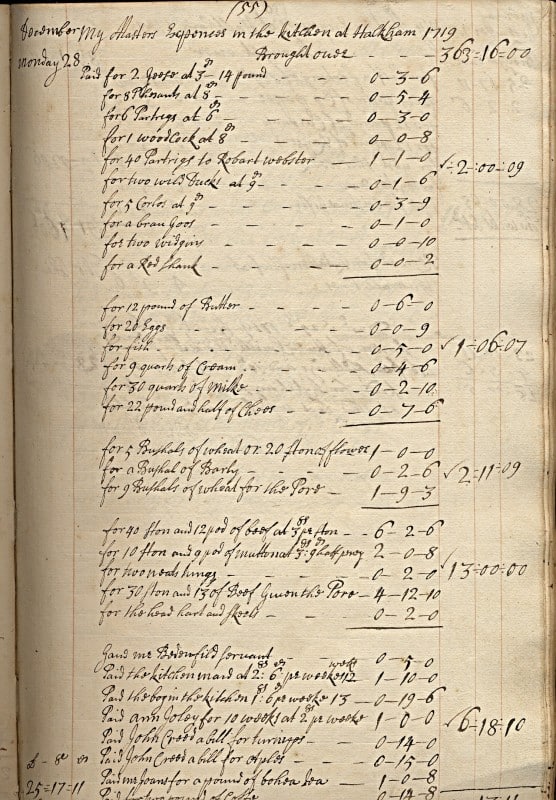 (55)
December My Masters Expences in the kitchen at Halkham 1719
Brought ouer - 363=16=00
Monday 28
Paid for 2 Geese at 3d - 14 pound - - - 0-3-6
for 8 Phesants at 8d - - - 0-5-4
for 6 Partrigs at 6d - - - 0-3-0
for 1 woodcock at 8d - - - 0-0-8
for 40 Partrigs to Robart webster - 1-1-0 √=2=00=09
for two wild Ducks at 9d - - - 0-1-6
for 5 Corlos at 9d - - - 0-3-9
for a bran Goos - - - 0-1-0
for two widgins - - - 0-0-10
for a Red shank - - - 0-0-2
for 12 pound of Butter - - - 0-6-0
for 20 Eggs - - - 0-0-9
for fish - - - 0-5-0 √1=06=07
for 9 quarts of Cream - - - 0-4-6
for 30 quarts of Milke - - - 0-2-10
for 22 pound and half of Chees - - 0-7-6
for 5 Bushals of wheat or 20 ston of flower 1-0-0
for a Bushal of Barly - - - 0-2-6 √2=11=09
for 9 Bushals of wheat for the Pore - 1-9-3
for 40 ston and 12 pod of beef at 3s pr ston - 6-2-6
for 10 ston and 9 pod of mutton at 3s:9d half peny 2-0-8
for two neats tungs - - - 0-2-0 √13=00=00
for 30 ston and 13 of Beef Giuen the Pore - 4-12-10
for the head hart and skeets - - 0-2-0
Gaue mr Bedenfild servant - - 0-5-0
Paid the kitchen maid at 2s:6d pr weeke 12 week 1-10-0
Paid the boy in the kitchen 1s:6d pr weeke 13 - 0-19-6
Paid Ann Joley for 10 weeks at 2s pr weeke 1-0-0 √6=18=10
Paid John Creed a bill for turnepps - 0-14-0
£ - s - d Paid John Creed a bill for Aples - 0-15-0
25=17=11 Paid mr Joans for a pound of bohea tea 1-0-8
0-14-8